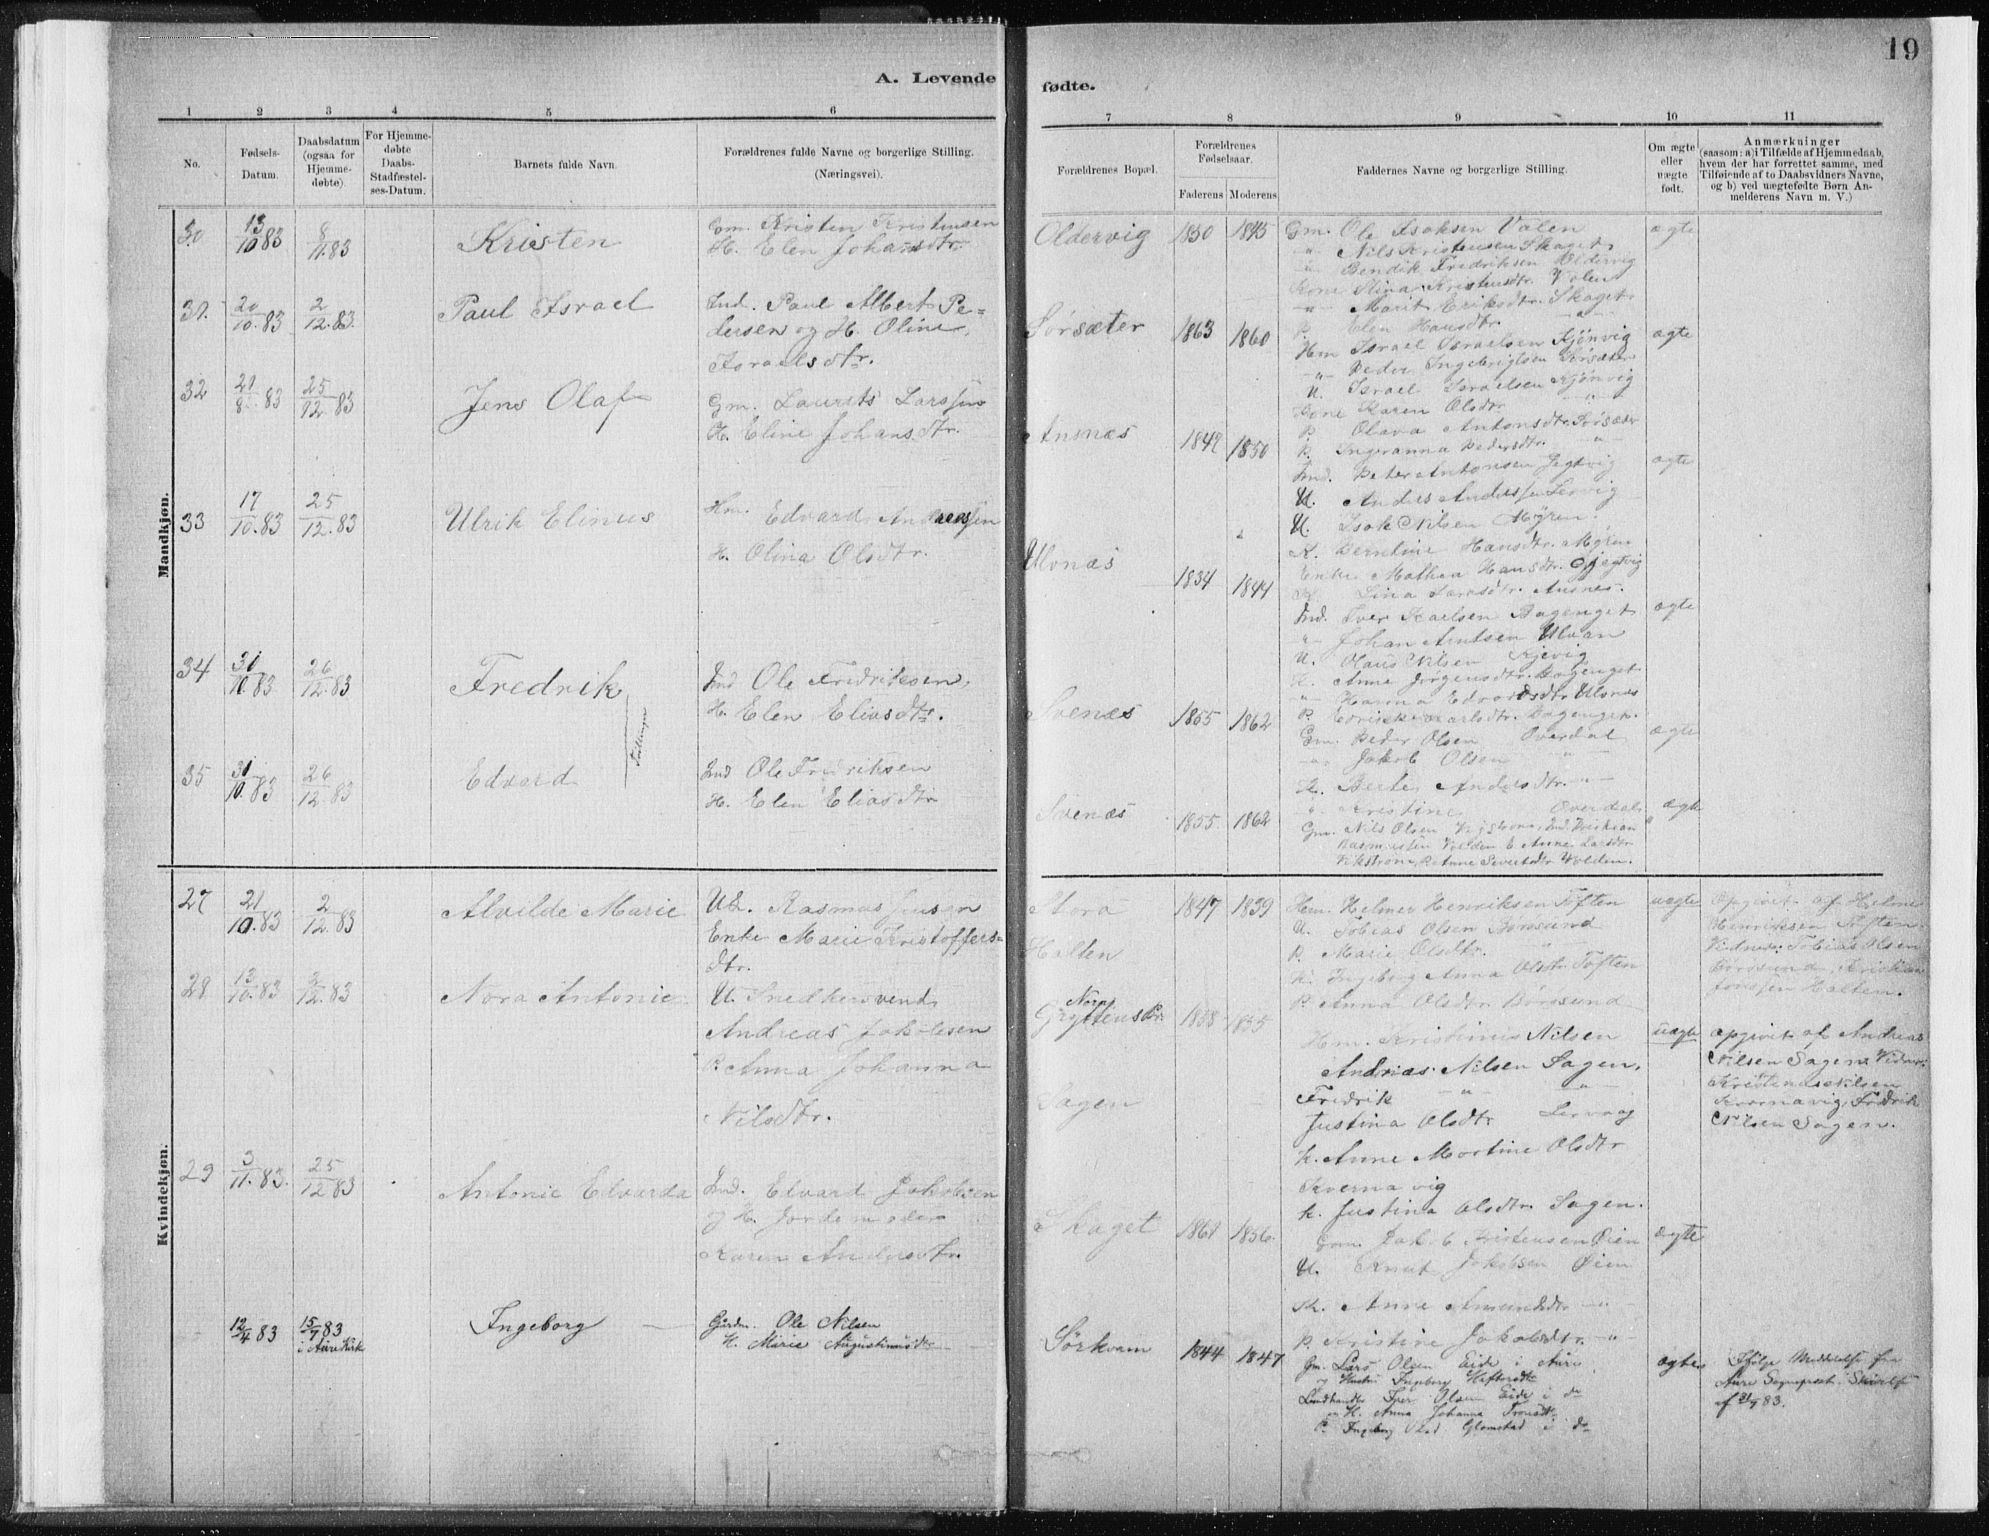 19
A. Levende
fødte.
1 2 3 4 5 6
7 8 9 10 11
No.
Fødsels-Datum.
Daabsdatum (ogsaa for Hjemme-døbte).
For Hjemme-døbte Daabs-Stadfæstel-ses-Datum.
Barnets fulde Navn.
Forældrenes fulde Navne og borgerlige Stilling. (Næringsvei).
Forældrenes Bopæl.
Forældrenes Fødselsaar.
Faderens Moderens
Faddernes Navne og borgerlige Stilling.
Om ægte eller uægte født.
Anmærkninger
(saasom: a) i Tilfælde af Hjemmedaab,
hvem der har forrettet samme, med
Tilføiende af to Daabsvidners Navne,
og b) ved uægtefødte Børn An-
melderens Navn m. V.)
Mandkjøn.
30 13/10 83 8/11.83 Kristen
Gm. Kristen Kristensen
H. Elen Johansdtr.
Oldervig 1850 1845
Gm. Ole Isaksen Valen
-"- Nils Kristensen Skaget
-"- Bendik Fredriksen Oldervig
Kone Stina Kristensdtr. Valen
-"- Marit Eriksdtr. Skaget
P. Elen Hansdtr. -"-
ægte
31. 20/10.83 2/12.83 Paul Israel
Ind. Paul Albert Pe-
dersen og H. Oline
Israelsdtr.
Sørsæter 1863 1860
Hm Israel Israelsen Kjønvig
-"- Peder Ingebrigtsen Sørsæter
U. Israel Israelsen Kjønvig
Kone Karen Olsdtr. "
P. Olava Antonsdtr. Sørsæter
P. Ingeranna Pedersdtr. -"-
ægte
32 29/8.83 25/12.83 Jens Olaf
Gm. Laurits Larssen
H. Eline Johansdtr.
Ansnæs 1842 1850
Ind. Peter Antonsen Jegtvig
U. Anders Anderssen Lervig
U. Isak Nilsen Myren.
K. Berntine Hansdtr. Myren
Enke Mathea Hansdtr. Jegtvig
K. Lina Larsdtr. Ansnes.
ægte
33 17/10.83 25/12.83 Ulrik Elinus
Hm. Edvard Andreassen
H. Olina Olsdtr.
Ulvnæs 1834 1844
Ind. Iver Karlsen Bagenget
-"- Johan Arntsen Ulvan
U. Olaus Nilsen Kjevig
K. Anne Jørgensdtr. Bagenget
-"- Hanna Edvardsdtr. Ulvnæs
P. Karlsdtr. Bagenget.
ægte
34 31/10.83 26/12.83 Fredrik
Tvillinger
Ind Ole Fredriksen,
H. Elen Eliasdtr.
Svenæs 1855 1862
Gm. Peder Olsen Overdal
-"- Jakob Olsen -"-
K. Berte Andersdtr. -"-
-"- Kristine Overdal
ægte
35 31/10.83 26/12.83 Edvard
Ind Ole Fredriksen
H. Elen Eliasdtr
Svenæs 1855. 1862
Gm. Nils Olsen Vikstrøm, Ind. Kristian
Rasmussen Volden E. Anne Larsdtr
Vikstrøm, P. Anne Sivertsdtr Volden.
ægte
Kvindekjøn.
27 21/10.83 2/12.83 Alvilde Marie
Uk. Rasmus Jensen
Enke Marie Kristoffers-
dtr.
Storø
Halten
1847 1839
Hm. Helmer Henriksen Toften
U. Tobias Olsen Børøsund
P. Marie Olsdtr. "
K. Ingeborg Anna Olsdtr. Toften
P. Anna Olsdtr. Børøsund
uægte
Opgivet af Helmer
Henriksen Toften.
Vidner: Tobias Olsen
Børøsund, Kristian
Jonssen Halten.
28 13/10.83 2/12.83 Nora Antonie
U. Snedkersvend
Andreas Jakobsen
P. Anna Johanna
Nilsdtr.
Gryttens Pr.
Sagen
1858 1855
Hm. Kristinus Nilsen
Andrias Nilsen Sagen,
Fredrik -"- -"-
Justina Olsdtr Lervaag
K. Anne Martine Olsdtr
Kvernavig
K. Justina Olsdtr. Sagen.
uægte
opgivet af Andreas
Nilsen Sagen. Vidner:
Kristinus Nilsen
Kvernavig, Fredrik
Nilsen Sagen.
29 3/11.83. 25/12 83 Antonie Edvarda
Ind. Edvard Jakobsen
og H. Jordemoder
Karen Andersdtr.
Skaget 1861 1856.
Gm. Jakob Kristensen Øien
U. Knut Jakobsen Øien
K. Anne Amundsdtr. -"-
P. Kristine Jakobsdtr. -"-
ægte
12/4 83 15/7 83 i Aure Kirk
Ingeborg
Gårdm. Ole Nilsen
H. Marie Augustinusdtr
Sørkvam 1844 1847
Gm. Lars Olsen Eide i Aure
og Hustru Ingeborg
Landhandler Iver Olsen Eide i do
H. Anna Johanna
P. Ingeborg Glomstad i do
ægte
Ifølge Meddelelse fra
Aure Sognepræst. Skrivelse
af 31/7 83.